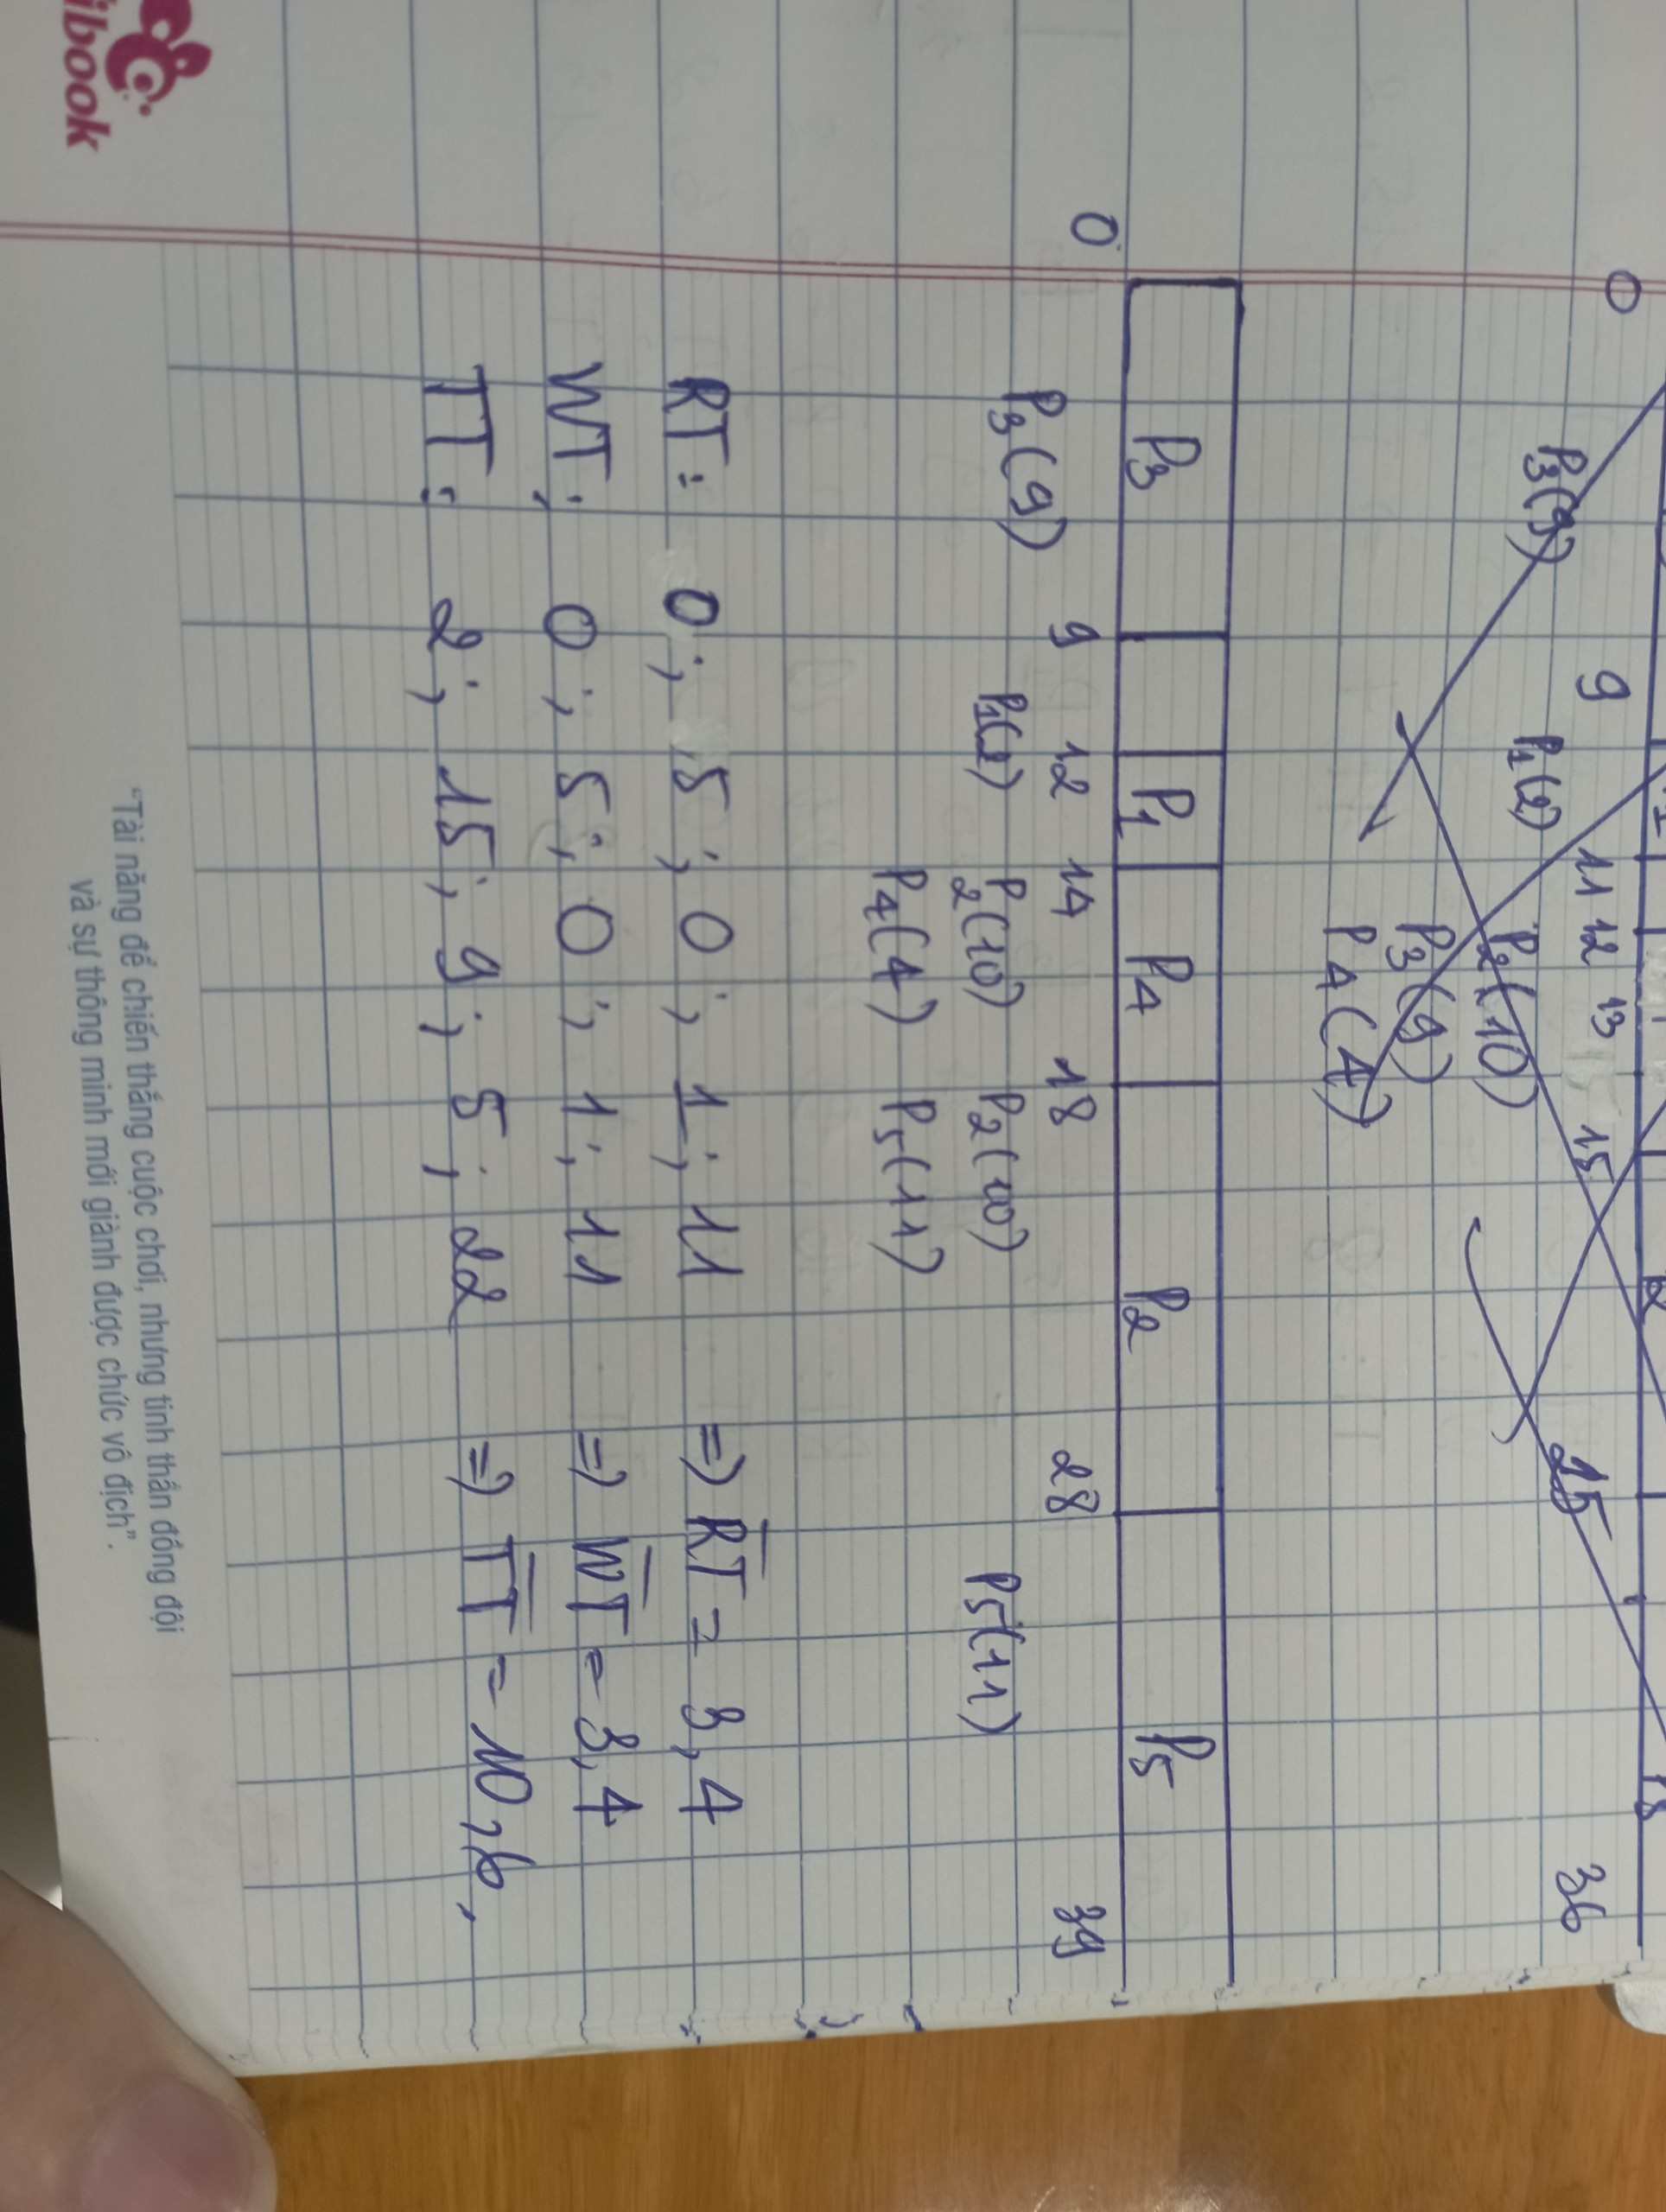 0 9 11 12 13 15 25 36
P3(9) P1(2) P2(10)
P3(9)
P4(4)
P3 P1 P4 P2 P5
0 9 12 14 18 28 39
P3(9) P1(2) P2(10) P2(10) P5(11)
P4(4) P5(11)
RT: 0; 5; 0; 1; 11 => RT = 3,4
WT: 0; 5; 0; 1; 11 => WT = 3,4
TT: 2; 15; 9; 5; 22 => TT = 10,6
"Tài năng để chiến thắng cuộc chơi, nhưng tinh thần đồng đội
và sự thông minh mới giành được chức vô địch".
ibook